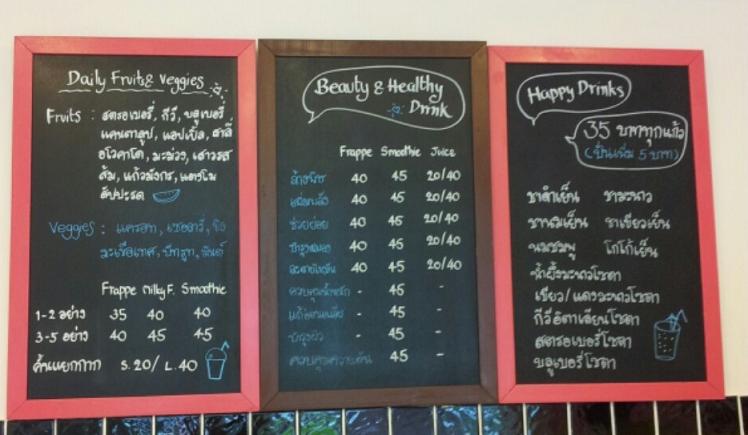 Daily Fruits & Veggies
Fruits : สตรอเบอรี่, กีวี, บลูเบอรี่
แคนตาลูป, แอปเปิ้ล, สาลี่
อโวคาโด, มะม่วง, เสาวรส
ส้ม, แก้วมังกร, แตงโม
สับปะรด
Veggies : แครอท, เซเลอรี่, ขิง
มะเขือเทศ, บีทรูท,
Frappe Milky F. Smoothie
1-2 อย่าง 35 40 40
3-5 อย่าง 40 45 45
คั้นแยกกาก S.20/ L.40
Beauty & Healthy
Drink
Frappe Smoothie Juice
ล้างพิษ 40 45 20/40
40 45 20/40
ช่วยย่อย 40 45 20/40
บำรุงสมอง 40 45 20/40
40 45 20/40
ควบคุมน้ำหนัก - 45 -
- 45 -
บำรุงผิว - 45 -
ควบคุมความดัน 45 -
Happy Drinks
35 บาททุกแก้ว
(ปั่นเพิ่ม 5 บาท)
ชาดำเย็น ชามะนาว
ชานมเย็น ชาเขียวเย็น
นมชมพู โกโก้เย็น
น้ำผึ้งมะนาวโซดา
เขียว/แดงมะนาวโซดา
กีวีอิตาเลียนโซดา
สตรอเบอรี่โซดา
บลูเบอรี่โซดา